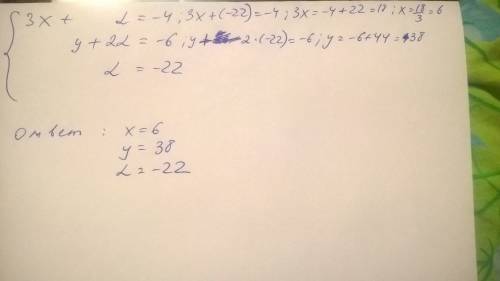 { 3x + L = -4 ; 3x+(-22)=-4 ; 3x=-4+22=18 ; x=18/3=6
y + 2L = -6 ; y + 2·(-22)=-6 ; y=-6+44=38
L = -22
Ответ : x=6
y = 38
L = -22